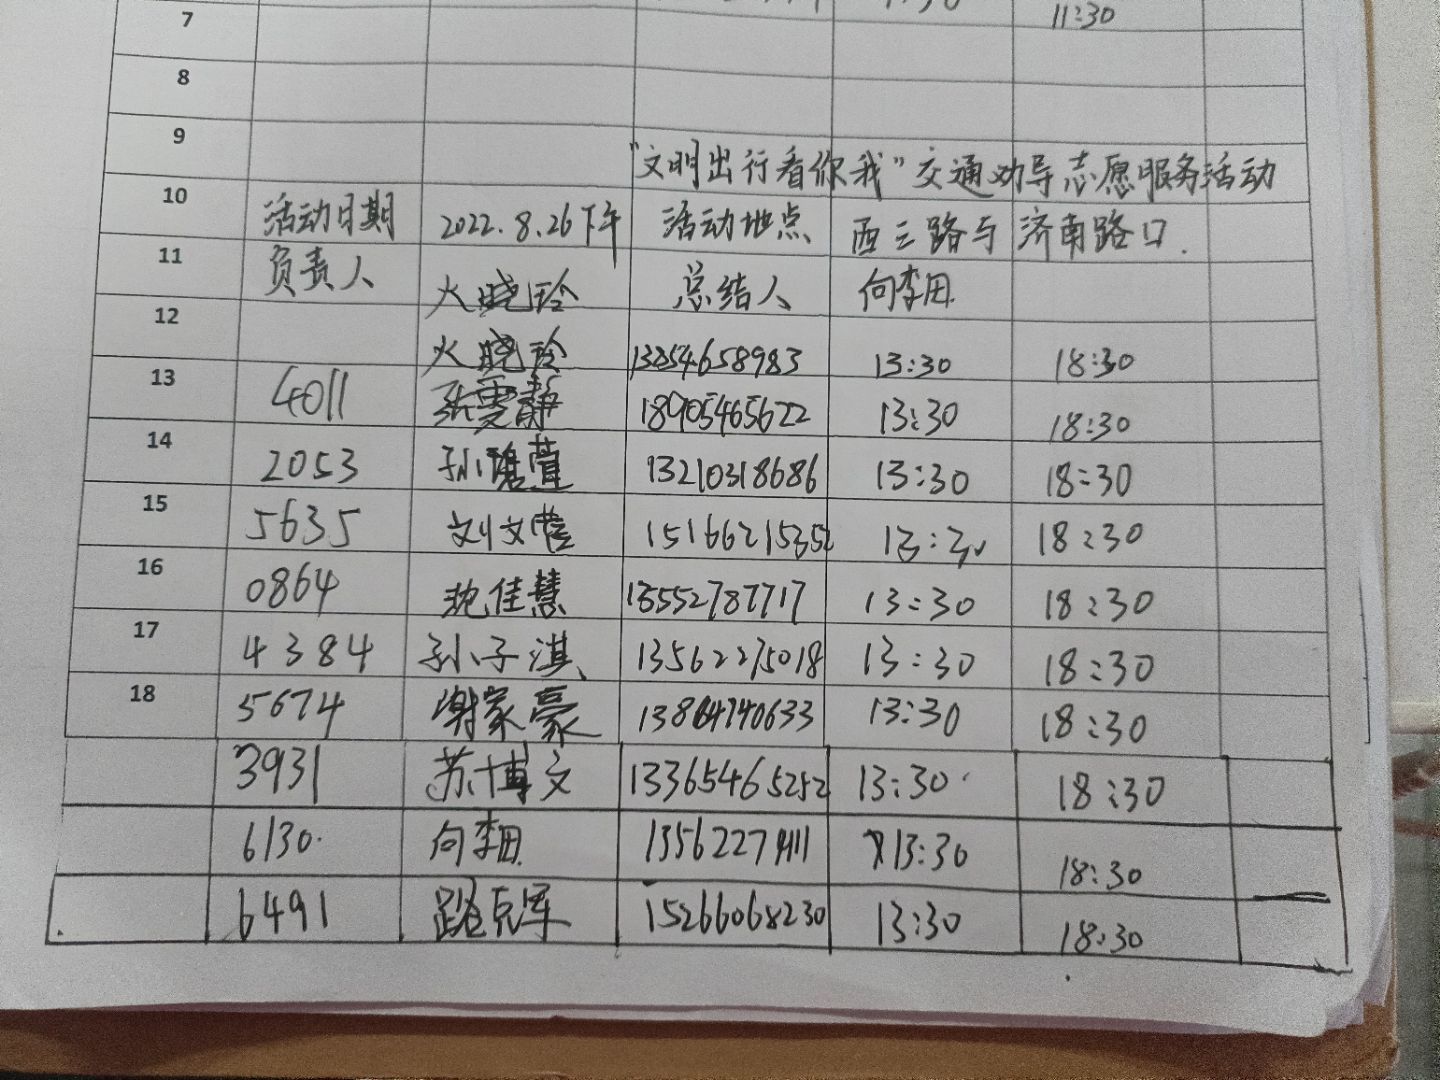 7 11:30
8
9
"文明出行看你我"交通劝导志愿服务活动
10 活动日期 2022.8.26下午 活动地点 西三路与济南路口.
11 负责人 火晓玲 总结人 向李田
12 火晓玲 13854658983 13:30 18:30
13 4011 张雯静 18905465622 13:30 18:30
14 2053 孙 萱 13210318686 13:30 18:30
15 5635 刘文蕾 15166215352 13:30 18:30
16 0864 沈佳慧 13552787717 13:30 18:30
17 4384 孙子淇 13562275018 13:30 18:30
18 5674 谢家豪 13864740633 13:30 18:30
3931 苏博文 13365465252 13:30 18:30
6130 向李田 13:30 18:30
6491 路克军 15266068230 13:30 18:30